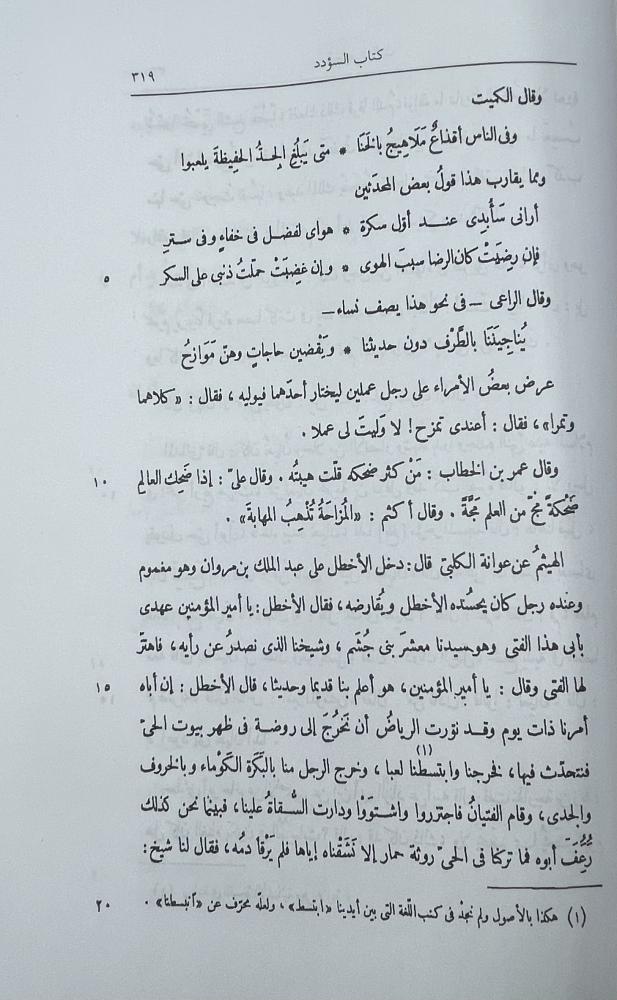 كتاب السؤدد ٣١٩
وقال الكميت
وفى الناس أقذاعٌ مَلَاهِيجُ بالخَنَا * متى يَبْلُغِ الجِدُّ الحفِيظةَ يلعبوا
ومما يقارب هذا قولُ بعض المحدَثين
أرانى سَأُبدِى عنـد أوّل سكرة * هواى لفضل فى خفاءٍ وفى سترِ
فإن رضِيَتْ كان الرضا سببَ الهوى * وإن غضِبَتْ حمّلتُ ذنبى على السكر ٥
وقال الراعى – فى نحو هذا يصف نساء –
يُناجِينَنا بالطَّرْف دون حديثنا * ويَقْضين حاجاتٍ وهنّ مَوَازحُ
عرض بعضُ الأمراء على رجل عملين ليختار أحدَهما فيوليه ، فقال : «كلاهما
وتمرا» ، فقال : أعندى تمزح! لا وَلِيتَ لى عملا .
وقال عمر بن الخطاب : مَنْ كثر ضحكه قلّت هيبتُه . وقال علىّ : إذا ضَحِك العالِم ١٠
ضَحْكةً مجّ من العلم مَجَّةً . وقال أكثم : «المُزَاحَةُ تُذْهِبُ المهابةَ» .
الهيثمُ عن عوانة الكلبىّ قال : دخل الأخطل على عبد الملك بن مروان وهو مغموم
وعنده رجل كان يحسُده الأخطل ويُقارضه ، فقال الأخطل : يا أمير المؤمنين عهدى
بأبى هذا الفتى وهو سيدنا معشرَ بنى جُشَم ، وشيخنا الذى نصدرُ عن رأيه ، فاهتزّ
لها الفتى وقال : يا أمير المؤمنين ، هو أعلم بنا قديما وحديثا ، قال الأخطل : إن أباه ١٥
أمرنا ذات يوم وقـد نوّرت الرياضُ أن نَخْرُجَ إلى روضة فى ظهر بيوت الحىّ
فنتحدّث فيها ، فخرجنا وابتسطْنا (١) لعبا ، وخرج الرجل منا بالبَكْرَة الكَوْماء وبالخروف
والجدى ، وقام الفتيانُ فاجتزروا واشتوَوْا ودارت السُّقاةُ علينا ، فبينما نحن كذلك
رُعِفَ أبوه فما تركنا فى الحىّ روثة حمار إلا نَشَّقْناه إياها فلم يَرْقأ دمُه ، فقال لنا شيخ :
(١) هكذا بالأصول ولم نجد فى كتب اللغة التى بين أيدينا «ابتسط» ، ولعلّه محرّف عن «انبسطنا» . ٢٠